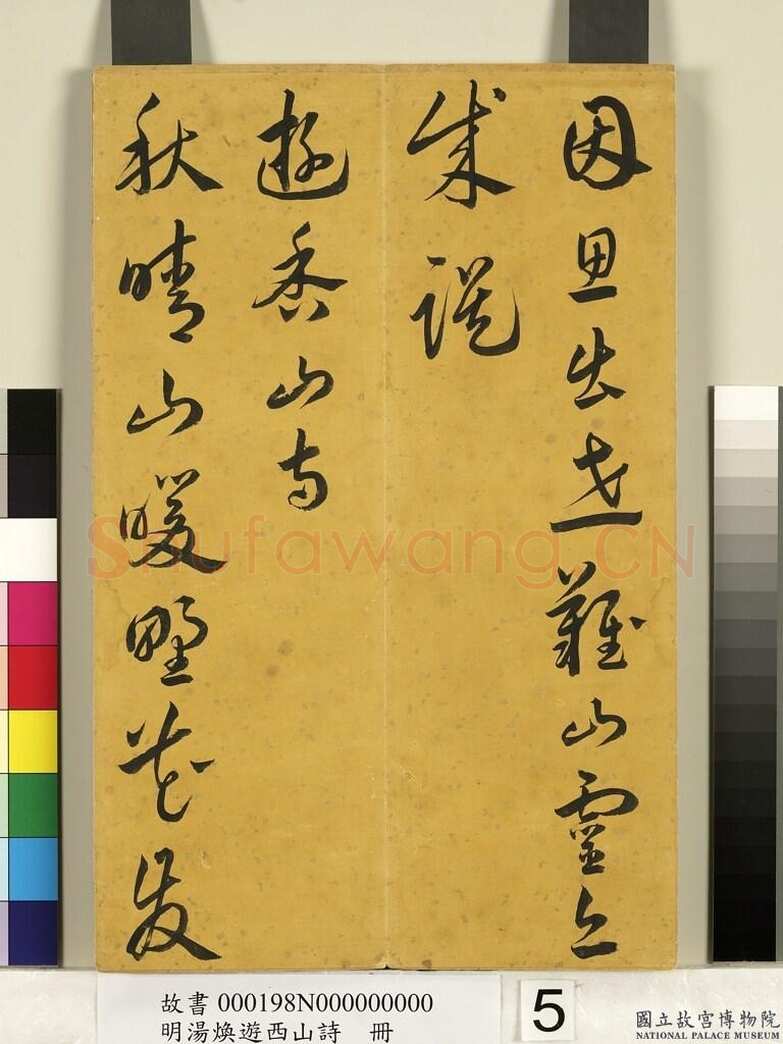 因思出世難山靈
成誤
遊香山寺
秋晴山暖野花發
Shufawang.CN
故書 000198N000000000
明湯煥遊西山詩 冊
5
國立故宮博物院
NATIONAL PALACE MUSEUM